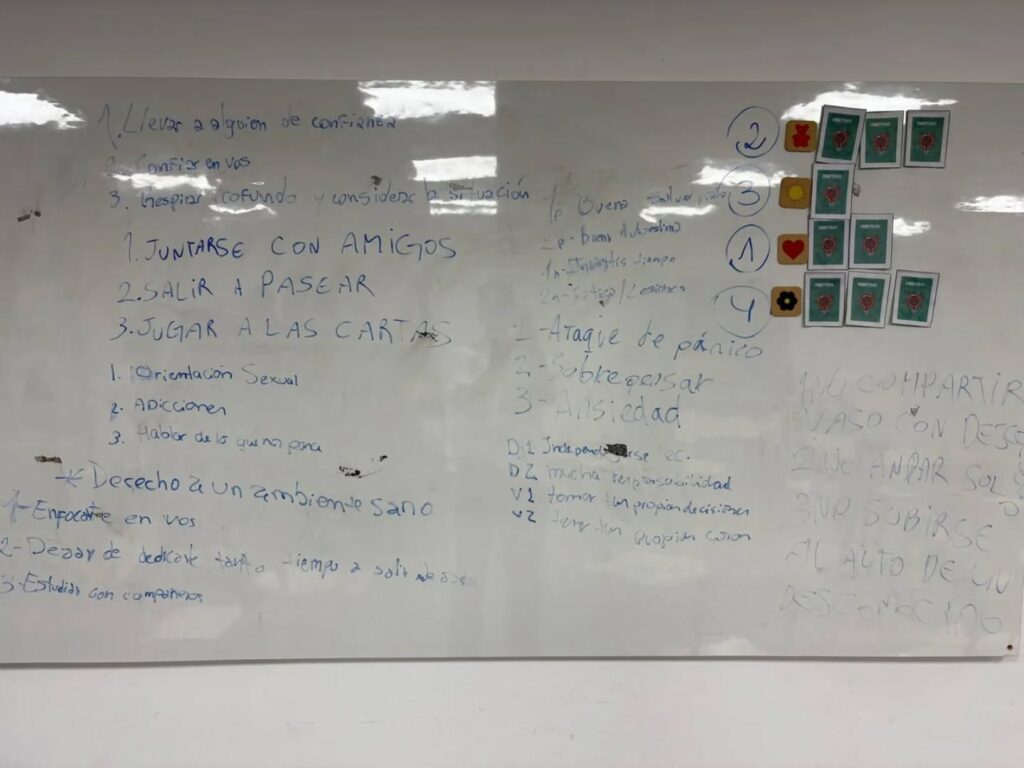 1. Llevar a alguien de confianza
2. Confiar en vos
3. Respirar profundo y considerar la situación
1. JUNTARSE CON AMIGOS
2. SALIR A PASEAR
3. JUGAR A LAS CARTAS
1. Orientación Sexual
2. ADICCIONES
3. Hablar de lo que nos pasa
* Desecho a un ambiente sano
1- Enfocarte en vos
2- Dejar de dedicarle tanto tiempo a salir
3- Estudiar con compañeros
1p Buena
2p- Buena Autoestima
1n- tiempo
2n- /Lesiones
1- Ataque de pánico
2- Sobrepensar
3- Ansiedad
D1 ec.
D2 mucha responsabilidad
V1 tomar tus propias decisiones
V2 tener tu propia
2
3
1
4
OBJETIVO
OBJETIVO
OBJETIVO
OBJETIVO
OBJETIVO
OBJETIVO
OBJETIVO
OBJETIVO
OBJETIVO
1. NO COMPARTIR
VASO CON
2. NO ANDAR SOL
3. NO SUBIRSE
AL AUTO DE UN
DESCONOCIDO